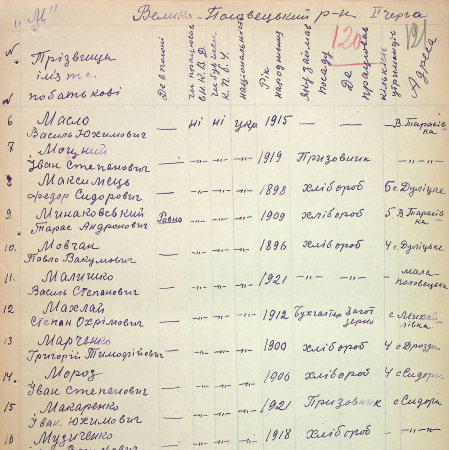 "М" Велико-Половецький р-н II черга
120 121
№ № Прізвище імя та побатькові Де в полоні чи працював в Н.К.В.Д. національність Рік народження Яку займав посаду Де працював кількість утриманців Адреса
6 Масло Василь Юхимович — ні ні укр 1915 — — — В. Тарасівка
7 Моцний Іван Степанович — -"- -"- -"- 1919 Призовник — -"-
8 Максимець Федор Сидорович — -"- -"- -"- 1898 хлібороб 5 с. Дулицке
9. Минаковський Тарас Андронович Равно -"- -"- -"- 1909 хлібороб 5. В Тарасівка
10. Мовчан Павло Вакумович — -"- -"- -"- 1896 хлібороб 4 с. Дулицьке
11. Маличко Василь Степанович — -"- -"- -"- 1921 -"- — мало-половецька
12 Махлай Степан Охрімович — -"- -"- -"- 1912 Бухгалтер Загот зерно с Михайлівка
13 Марченко Григорій Тимофійович — -"- -"- -"- 1900 хлібороб 4 с Дрозди
14. Мороз Іван Степанович — -"- -"- -"- 1906 хлібороб 4 с Сидори
15 Макаренко Іван Юхимович — -"- -"- -"- 1921 Призовник с Сидора
16 Музиченко — -"- -"- -"- 1918 хлібороб — -"-